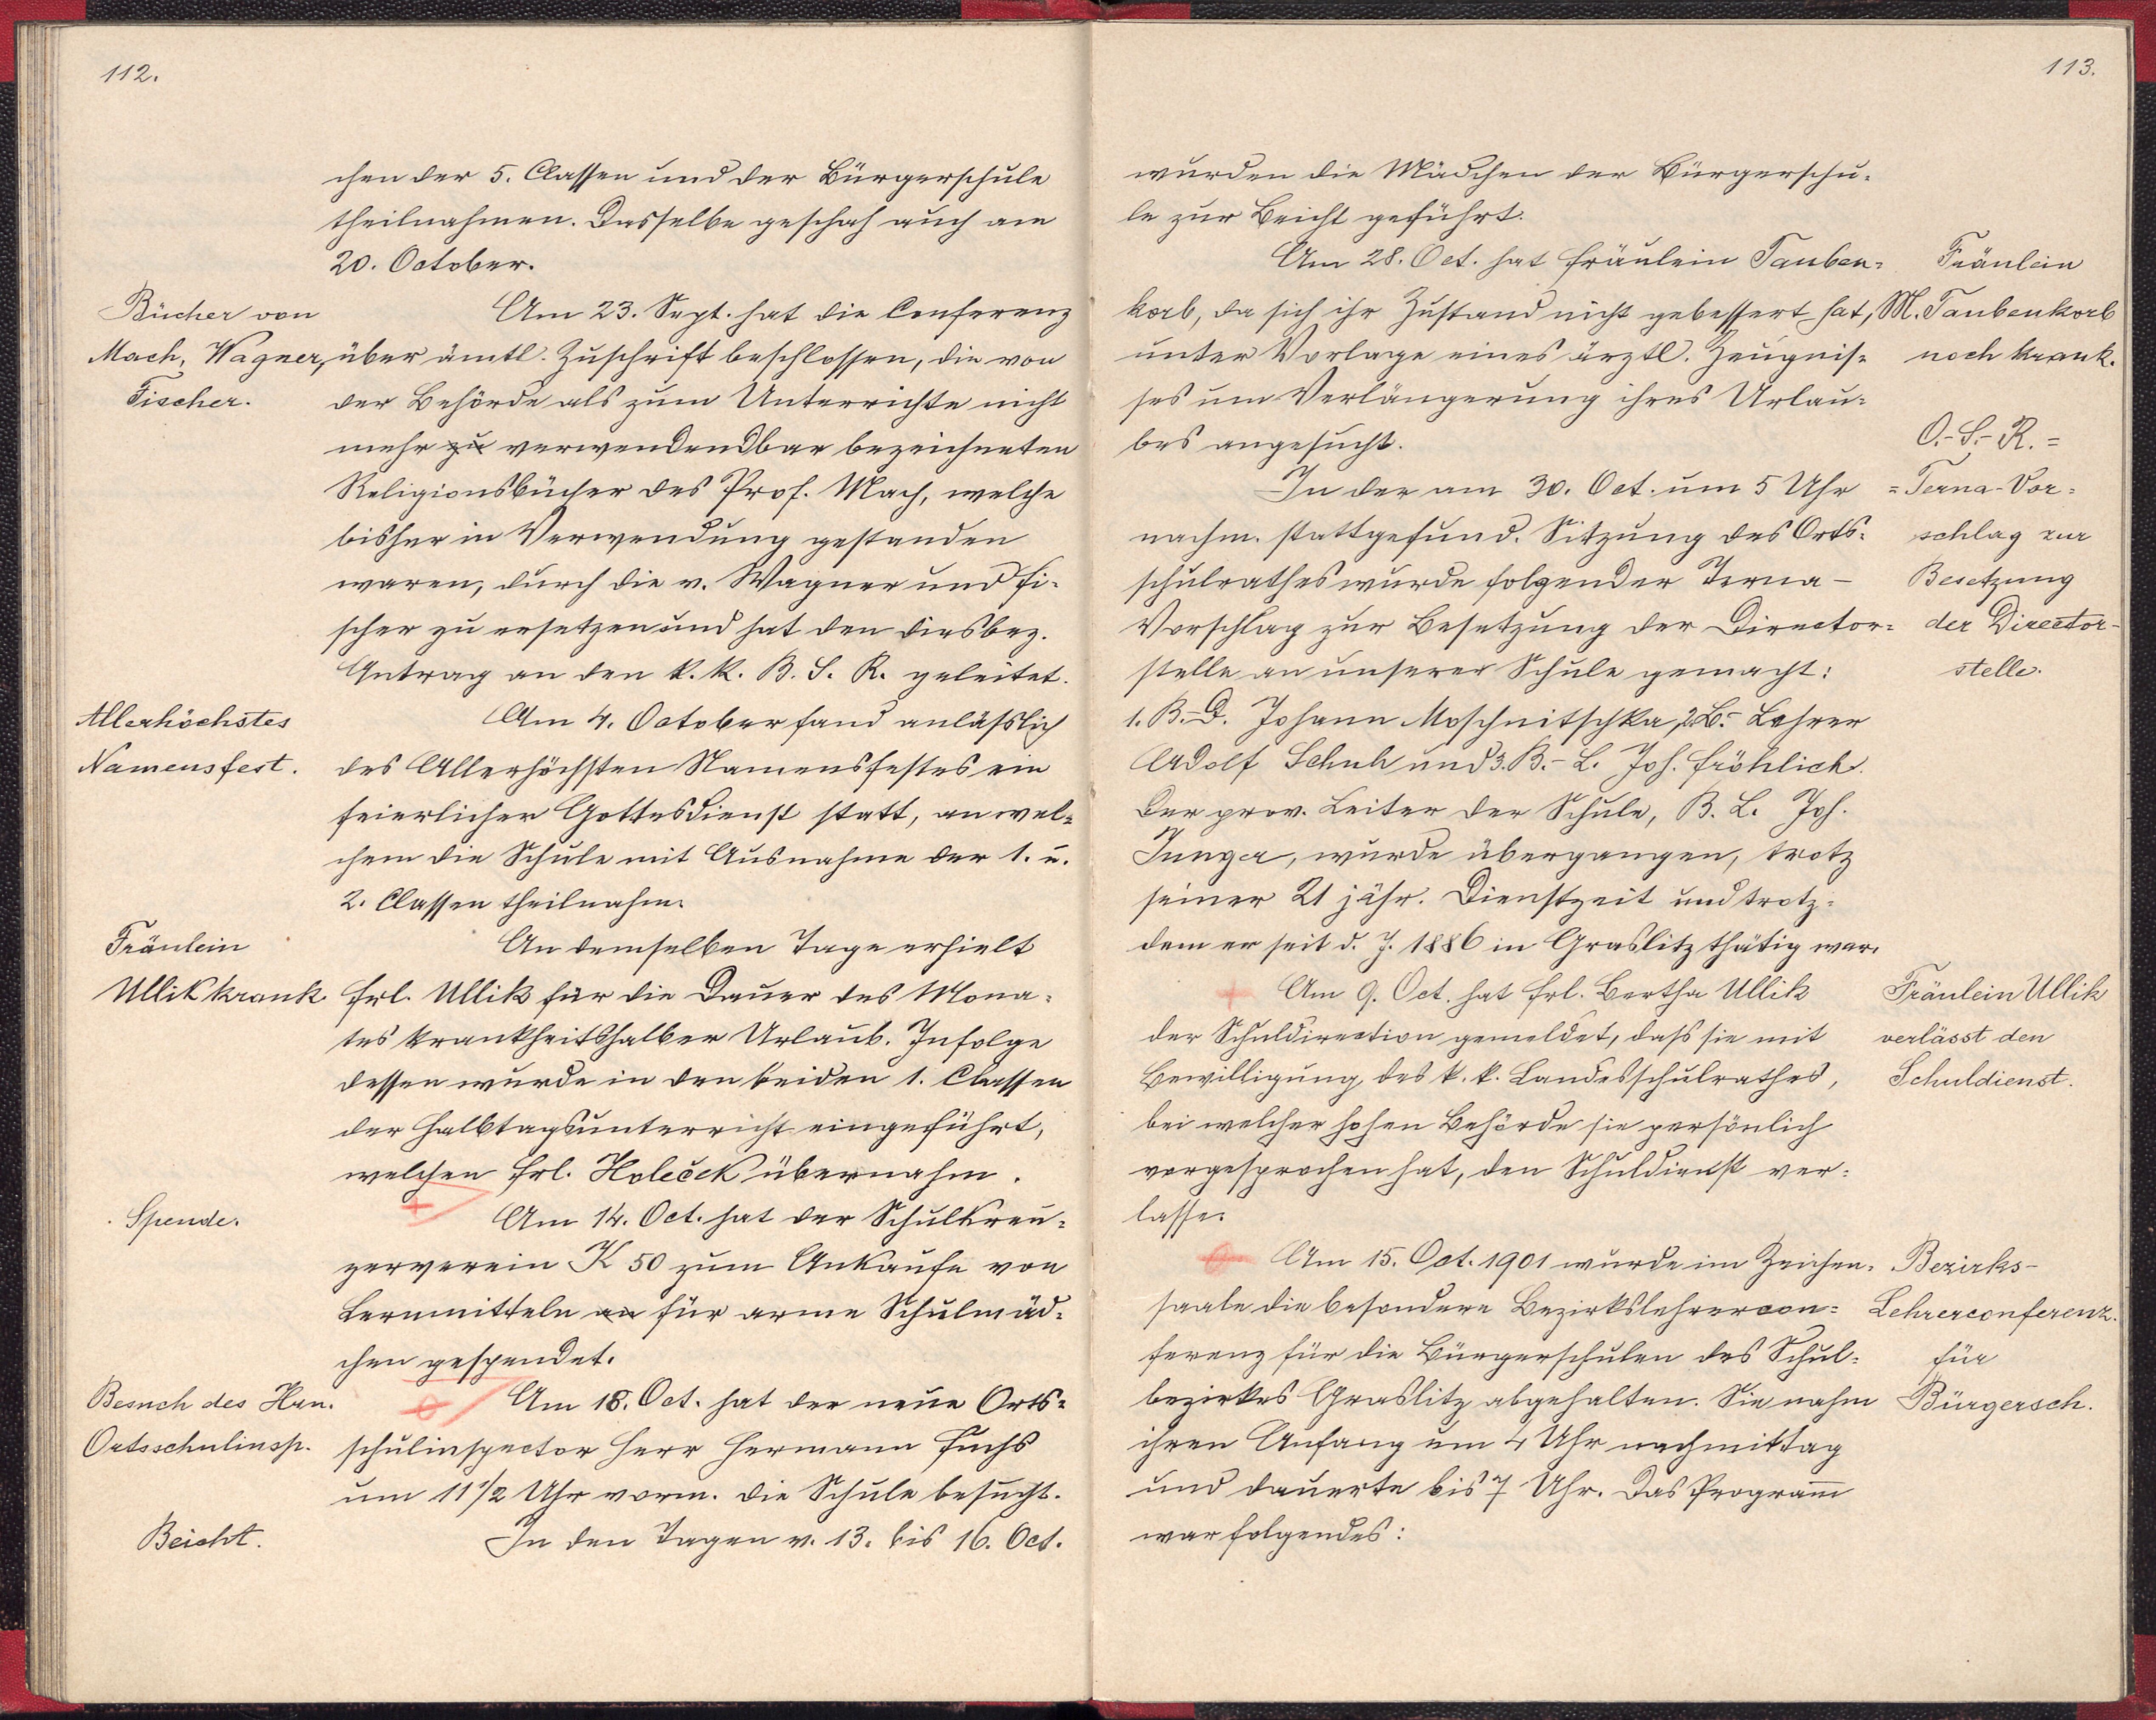 112.
chen der 5. Classen und der Bürgerschule
theilnahmen. Dasselbe geschah auch am
20. October.
Bücher von
Mach, Wagner,
Fischer.
Am 23. Sept. hat die Conferenz
über ämtl. Zuschrift beschlossen, die von
der Behörde als zum Unterrichte nicht
mehr zu verwendendbar bezeichneten
Religionsbücher des Prof. Mach, welche
bisher in Verwendung gestanden
waren, durch die v. Wagner und Fi-
scher zu ersetzen und hat den diesbez.
Antrag an den k. k. B. S. R. geleitet.
Allerhöchstes
Namensfest.
Am 4. October fand anläßlich
des Allerhöchsten Namensfestes ein
feierlicher Gottesdienst statt, an wel-
chem die Schule mit Ausnahme der 1. u.
2. Classen theilnahm.
Fräulein
Ullik krank.
An demselben Tage erhielt
Frl. Ullik für die Dauer des Mona-
tes krankheitshalber Urlaub. Infolge
dessen wurde in den beiden 1. Classen
der Halbtagsunterricht eingeführt,
welchen Frl. Holeček übernahm.
Spende.
Am 14. Oct. hat der Schulkreu-
zerverein K 50 zum Ankaufe von
Lernmitteln an für arme Schulmäd-
chen gespendet.
Besuch des Hrn.
Ortsschulinsp.
Am 18. Oct. hat der neue Orts-
schulinspector Herr Hermann Fuchs
um 11 1/2 Uhr vorm. die Schule besucht.
Beicht.
In den Tagen v. 13. bis 16. Oct.
113.
wurden die Mädchen der Bürgerschu-
le zur Beicht geführt.
Am 28. Oct. hat Fräulein Tauben-
korb, da sich ihr Zustand nicht gebessert hat,
unter Vorlage eines ärztl. Zeugnis-
ses um Verlängerung ihres Urlau-
bes angesucht.
Fräulein
M. Taubenkorb
noch krank.
In der am 30. Oct. um 5 Uhr
nachm. stattgefund. Sitzung des Orts-
schulrathes wurde folgender Terna-
Vorschlag zur Besetzung der Director-
stelle an unserer Schule gemacht:
1. B.-D. Johann Moschnitschka, 2. B.- Lehrer
Adolf Schuh und 3. B.- L. Joh. Fröhlich.
Der prov. Leiter der Schule, B. L. Joh.
Junger, wurde übergangen, trotz
seiner 21 jähr. Dienstzeit und trotz-
dem er seit d. J. 1886 in Graslitz thätig war.
O.-S.-R.=
=Terna-Vor-
schlag zur
Besetzung
der Director-
stelle.
Am 9. Oct. hat Frl. Bertha Ullik
der Schuldirection gemeldet, daß sie mit
Bewilligung des k. k. Landesschulrathes,
bei welcher hohen Behörde sie persönlich
vorgesprochen hat, den Schuldienst ver-
lasse.
Fräulein Ullik
verlässt den
Schuldienst.
Am 15. Oct. 1901 wurde im Zeichen-
saale die besondere Bezirkslehrercon-
ferenz für die Bürgerschulen des Schul-
bezirkes Graslitz abgehalten. Sie nahm
ihren Anfang um 4 Uhr nachmittag
und dauerte bis 7 Uhr. Das Programm
war folgendes:
Bezirks-
Lehrerconferenz.
für
Bürgersch.